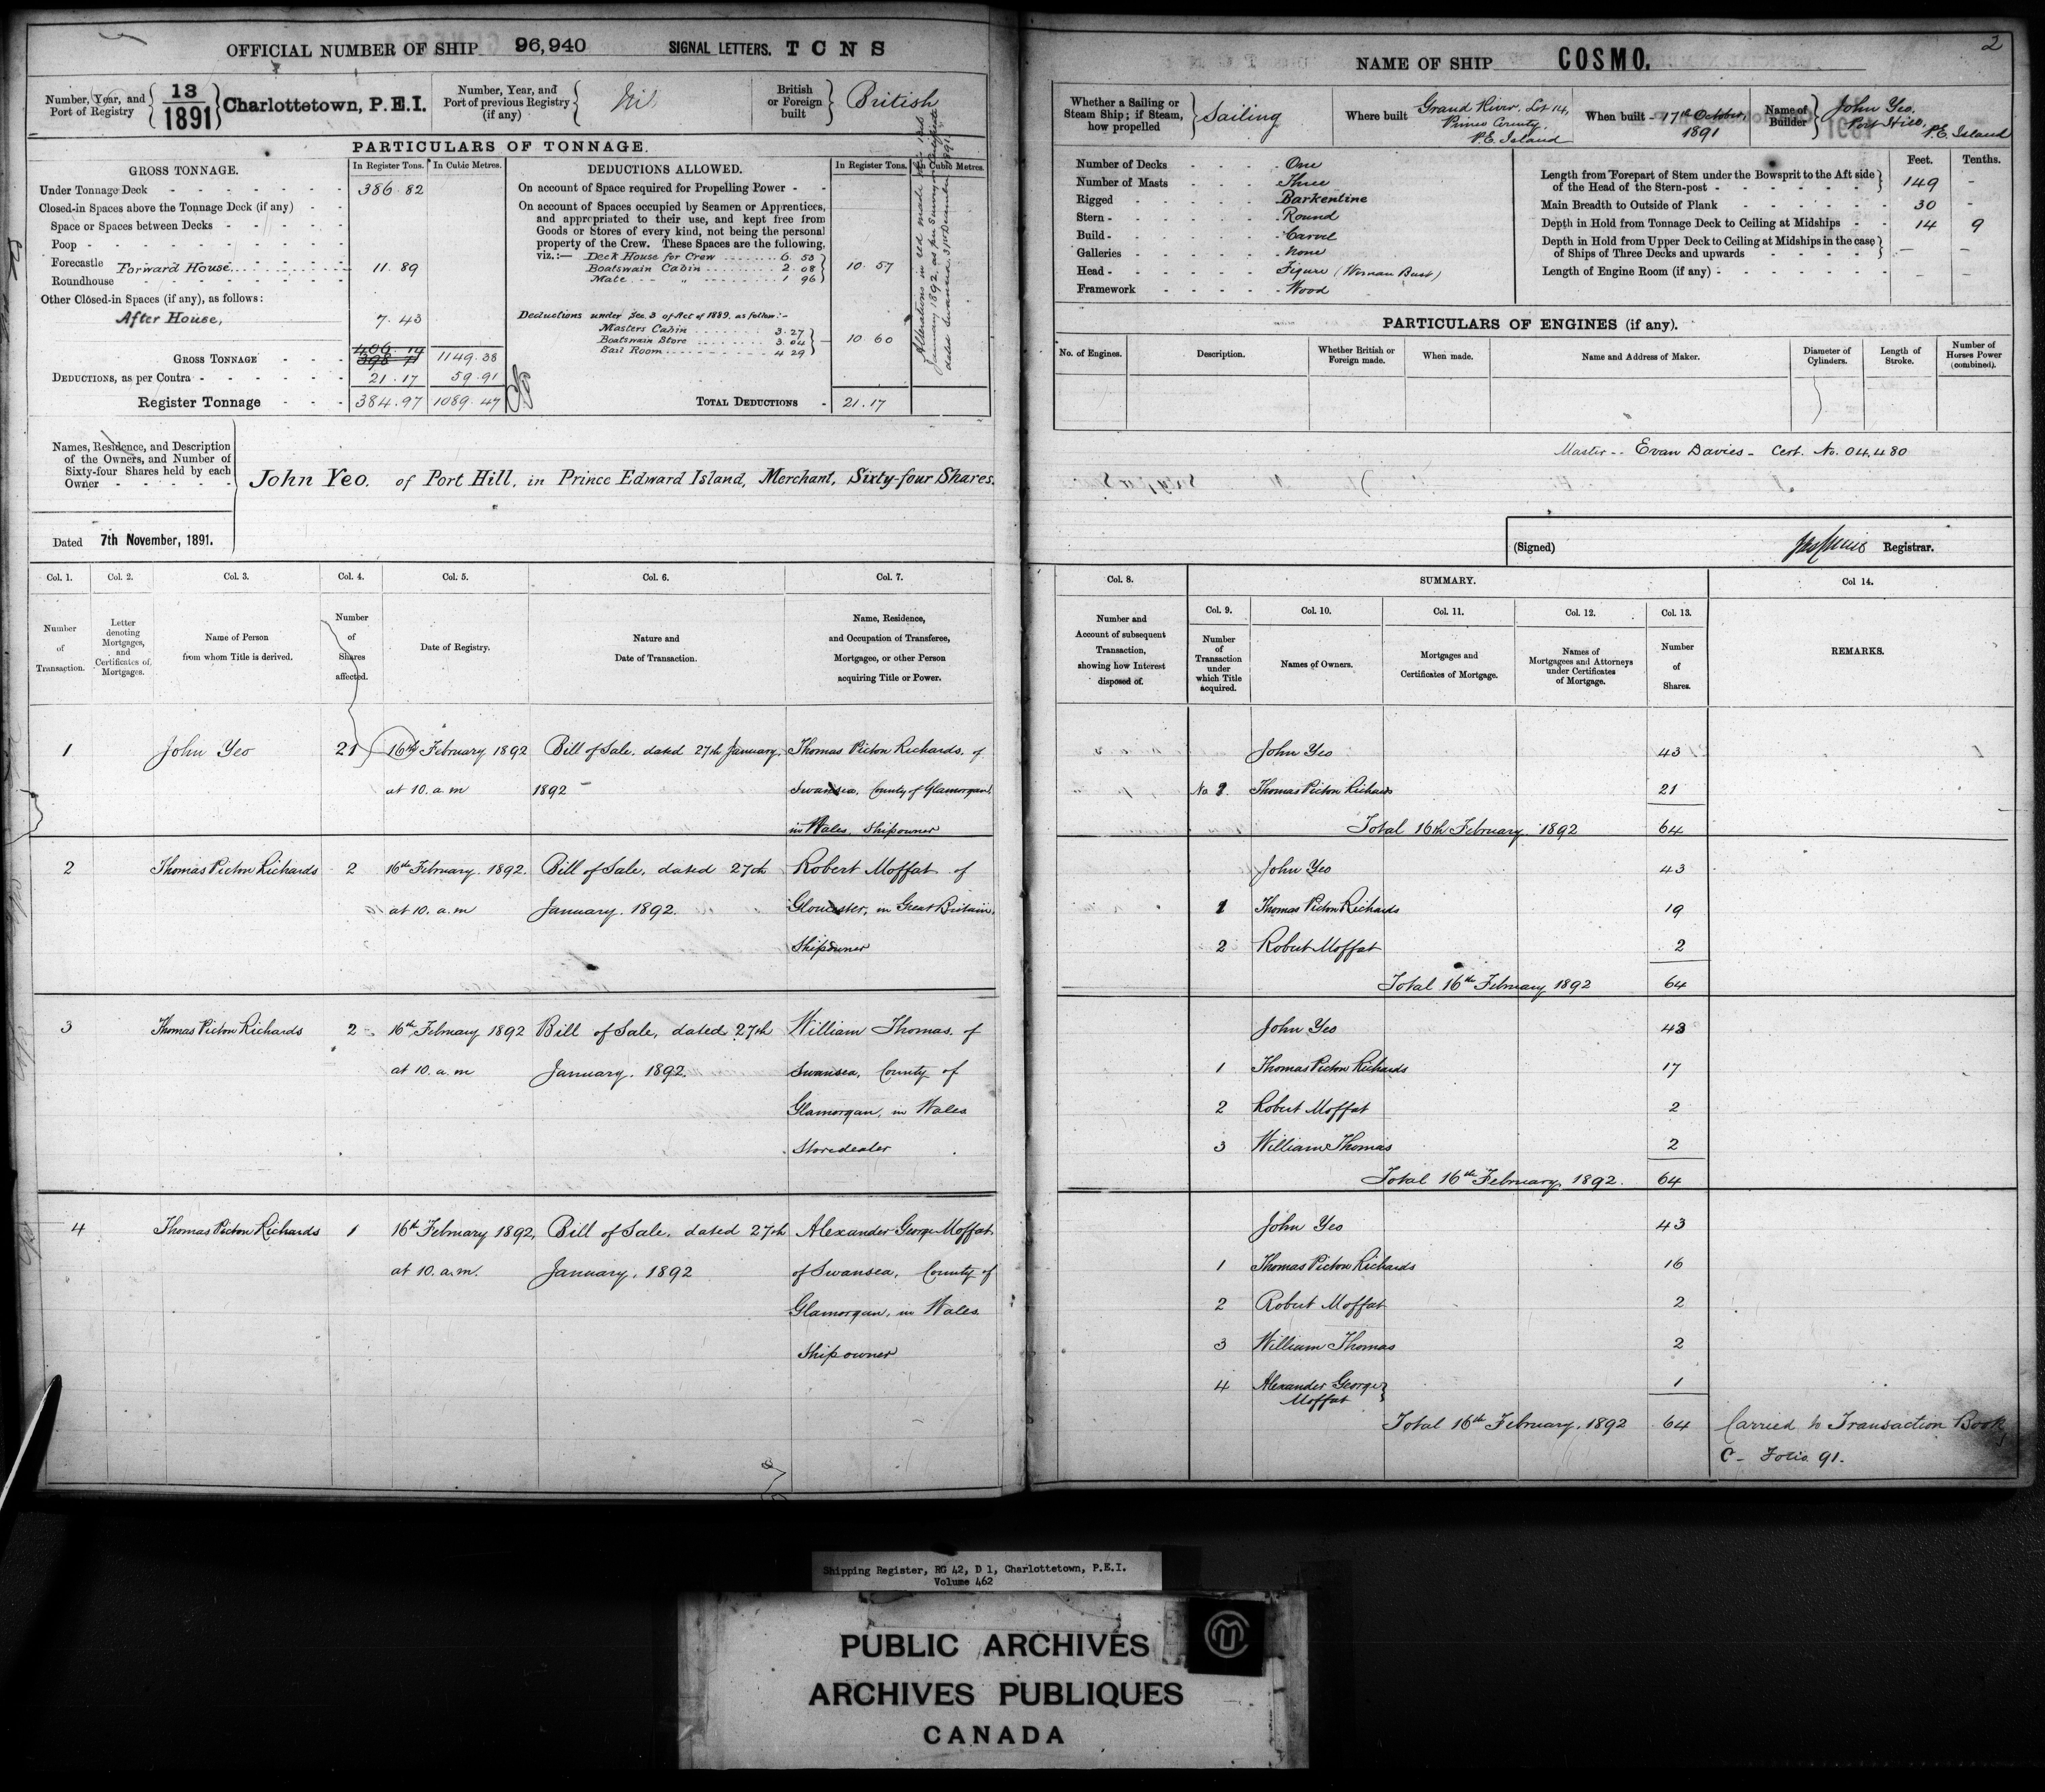 OFFICIAL NUMBER OF SHIP 96,940 SIGNAL LETTERS. T C N S
Number, Year, and Port of Registry { 13/1891 } Charlottetown, P.E.I.
Number, Year, and Port of previous Registry (if any) { Nil
British or Foreign built } British
PARTICULARS OF TONNAGE.
GROSS TONNAGE. In Register Tons. In Cubic Metres.
Under Tonnage Deck - - - - - - - 386.82
Closed-in Spaces above the Tonnage Deck (if any) - -
Space or Spaces between Decks - - - - - -
Poop - - - - - - - - - -
Forecastle Forward House 11.89
Roundhouse - - - - - - - -
Other Closed-in Spaces (if any), as follows:
After House, 7.43
406.14
398.71
GROSS TONNAGE - - - 1149.38
DEDUCTIONS, as per Contra - - - - - - 21.17 59.91
Register Tonnage - - - 384.97 1089.47
DEDUCTIONS ALLOWED. In Register Tons. In Cubic Metres.
On account of Space required for Propelling Power - -
On account of Spaces occupied by Seamen or Apprentices,
and appropriated to their use, and kept free from
Goods or Stores of every kind, not being the personal
property of the Crew. These Spaces are the following,
viz.:— Deck House for Crew 6.53
Boatswain Cabin 2.08 } 10.57
Mate " 1 96
Deductions under Sec. 3 of Act of 1889, as follow:-
Masters Cabin 3.27
Boatswain Store 3.04 } 10 60
Sail Room 4 29
TOTAL DEDUCTIONS - 21.17
Alterations in red made this
January 1892, as per Surveyors Certificate
dated Swansea, 31st December 1891
Names, Residence, and Description
of the Owners, and Number of
Sixty-four Shares held by each
Owner - - - - -
John Yeo. of Port Hill, in Prince Edward Island, Merchant, Sixty-four Shares.
Dated 7th November, 1891.
Col. 1. Col. 2. Col. 3. Col. 4. Col. 5. Col. 6. Col. 7.
Number of Transaction.
Letter denoting Mortgages, and Certificates of Mortgages.
Name of Person from whom Title is derived.
Number of Shares affected.
Date of Registry.
Nature and Date of Transaction.
Name, Residence, and Occupation of Transferee, Mortgagee, or other Person acquiring Title or Power.
1 John Yeo 21 16th February 1892 Bill of Sale, dated 27th January, Thomas Picton Richards, of
at 10. a.m 1892 Swansea, County of Glamorgan,
in Wales, Shipowner
2 Thomas Picton Richards 2 16th February. 1892. Bill of Sale, dated 27th Robert Moffat of
at 10. a.m January. 1892. Gloucester, in Great Britain,
Shipowner
3 Thomas Picton Richards 2 16th February 1892 Bill of Sale, dated 27th William Thomas, of
at 10. a.m January. 1892 Swansea, County of
Glamorgan, in Wales
Storedealer
4 Thomas Picton Richards 1 16th February 1892, Bill of Sale, dated 27th Alexander George Moffat
at 10. a.m. January, 1892 of Swansea, County of
Glamorgan, in Wales
Shipowner
2
NAME OF SHIP COSMO.
Whether a Sailing or Steam Ship; if Steam, how propelled } Sailing
Where built Grand River. Lot 14,
Prince County.
P.E. Island
When built - 17th October, 1891
Name of Builder } John Yeo.
Port Hill,
P.E. Island
Number of Decks - - - One
Number of Masts - - - Three
Rigged - - - - - Barkentine
Stern - - - - - Round
Build - - - - - Carvel
Galleries - - - - - None
Head - - - - - Figure (Woman Bust)
Framework - - - - - Wood
Feet. Tenths.
Length from Forepart of Stem under the Bowsprit to the Aft side
of the Head of the Stern-post - - - - - } 149 -
Main Breadth to Outside of Plank - - - - - 30 -
Depth in Hold from Tonnage Deck to Ceiling at Midships - - 14 9
Depth in Hold from Upper Deck to Ceiling at Midships in the case
of Ships of Three Decks and upwards - - - - } — —
Length of Engine Room (if any) - - - - - — —
PARTICULARS OF ENGINES (if any).
No. of Engines. Description. Whether British or Foreign made. When made. Name and Address of Maker. Diameter of Cylinders. Length of Stroke. Number of Horses Power (combined).
Master -- Evan Davies - Cert. No. 04,480
(Signed) Registrar.
Col. 8. SUMMARY. Col 14.
Col. 9. Col. 10. Col. 11. Col. 12. Col. 13.
Number and Account of subsequent Transaction, showing how Interest disposed of.
Number of Transaction under which Title acquired.
Names of Owners.
Mortgages and Certificates of Mortgage.
Names of Mortgagees and Attorneys under Certificates of Mortgage.
Number of Shares.
REMARKS.
John Yeo 43
No 1. Thomas Picton Richards 21
Total 16th February 1892 64
John Yeo 43
1 Thomas Picton Richards 19
2 Robert Moffat 2
Total 16th February 1892 64
John Yeo 43
1 Thomas Picton Richards 17
2 Robert Moffat 2
3 William Thomas 2
Total 16th February, 1892. 64
John Yeo 43
1 Thomas Picton Richards 16
2 Robert Moffat 2
3 William Thomas 2
4 Alexander George Moffat } 1
Total 16th February, 1892 64 Carried to Transaction Book
C - Folio 91.
Shipping Register, RG 42, D 1, Charlottetown, P.E.I.
Volume 462
PUBLIC ARCHIVES
ARCHIVES PUBLIQUES
CANADA